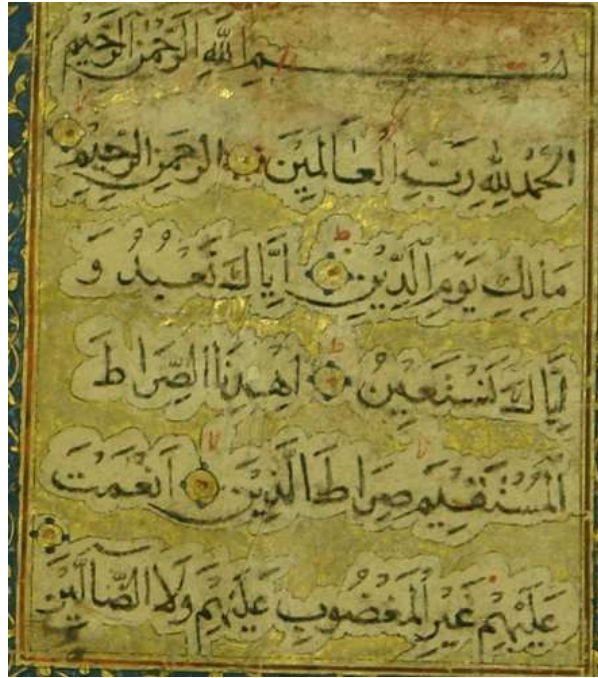 بسم الله الرحمن الرحيم
الحمد لله رب العالمين الرحمن الرحيم
مالك يوم الدين اياك نعبد و
اياك نستعين اهدنا الصراط
المستقيم صراط الذين انعمت
عليهم غير المغضوب عليهم ولا الضالين